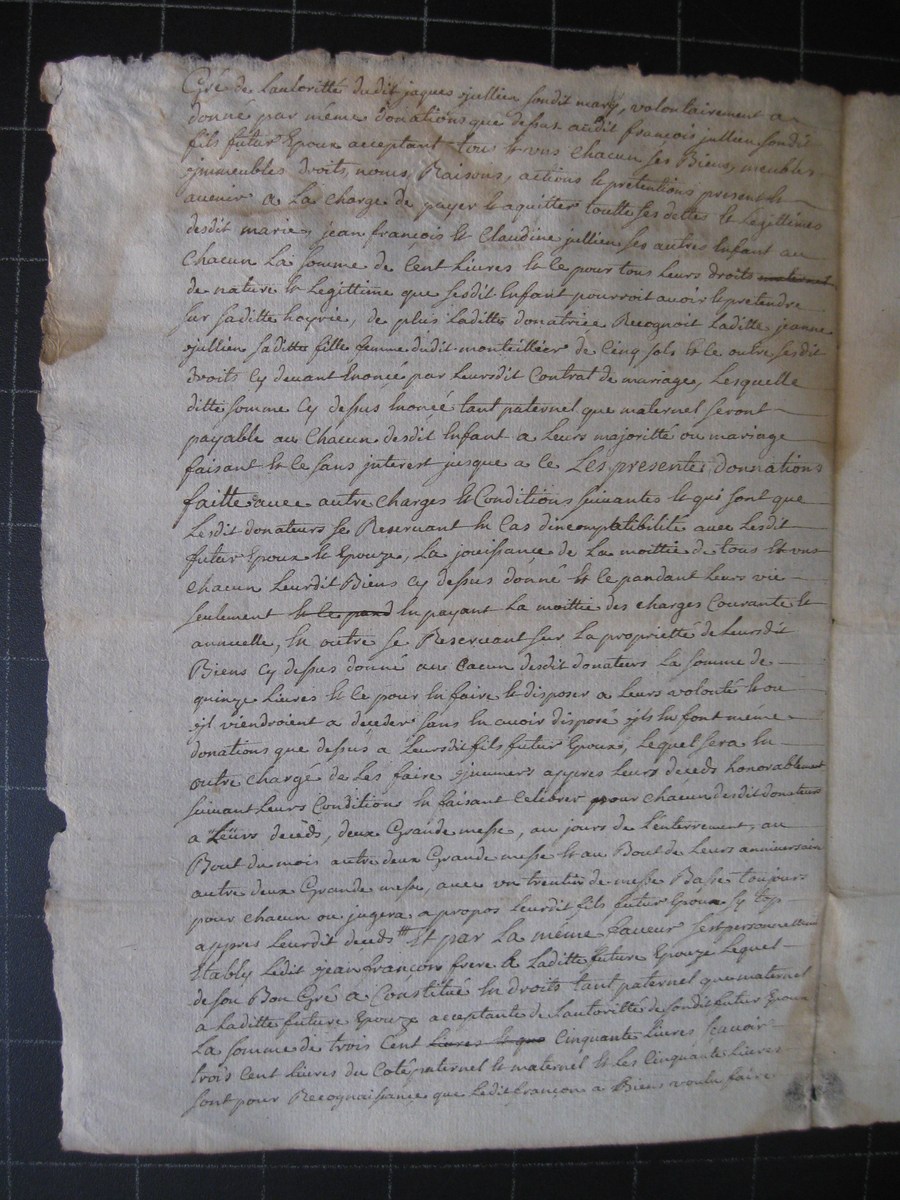 Gré de Lautoritté dudit jaques jullien sondit mary, volontairement a
donné par méme donations que dessus audit françois jullien sondit
fils futur Epoux acceptant tous et uns chacun ses Biens, meubles
jmmeubles droits, noms, Raisons, actions et pretentions present et
avenir a La charge de payer et aquitter toutte ses dettes et Legittimes
desdit marie, jean françois et Claudine jullien ses autres Enfant au
Chacun La somme de Cent Livres et ce pour tous Leurs droits maternel
de nature et Legittime que sesdit Enfant pourroit avoir et pretendre
sur saditte hoyrie, de plus Laditte donatrice Recognoit Laditte jeanne
jullien saditte fille femme dudit monteillier de Cinq sols et ce outre sesdit
droits Cy devant Enoncé par Leursdit Contrat de mariage, Lesquelle
ditte somme Cy dessus Enoncé tant paternel que maternel seront
payable au Chacun desdit Enfant a Leurs majoritté ou mariage
faisant et ce sans jnterest jusque a ce Les presente donnations
faitte avec autre Charges et Conditions suivantes et qui sont que
Lesdit donateurs se Reservant En Cas dincomptatibilité avec Lesdit
futur Epoux et Epouze, La jouissance de La moittie de tous et uns
chacun Leursdit Biens Cy dessus donné et ce pandant Leurs vie
seulement et ce pand En payant La moittie des charges Courante et
annuelle, En outre se Reservant sur La proprietté de Leursdit
Biens Cy dessus donné au Cacun desdit donateurs La somme de
quinze Livres et ce pour En faire et disposer a Leurs volonté et ou
jl viendroient a déceder sans En avoir disposé jls En font méme
donations que dessus a Leursdit fils futur Epoux, Lequel sera En
outre chargé de Les faire jnumers appres Leurs deceds honorablement
suivant Leurs Conditions En faisant Celebrer pour chacun desdit donateurs
a Leurs decéds, deux Grande messe, au jours de Lenterrement, au
Bout du mois autre deux Grande messe et au Bout de Leurs anniversain
autre deux Grande messe, avec un trentin de messe Basse toujours
pour chacun ou jugera apropos Leursdit fils futur Epoux sy top
appres Leursdit decéds # Et par La méme faveur s'est personnellement
Etably Ledit jean françois frere a Laditte future Epouze Lequel
de son Bon Gré a Constitué En droits tant paternel que maternel
a Laditte future Epouze acceptante de Lautoritté de sondit futur Epoux
La somme de trois Cent Livres et que Cinquante Livres scavoir
trois Cent Livres du Coté paternel et maternel et Les Cinquante Livres
sont pour Recognaissance que Ledit françois a Bien voulu faire